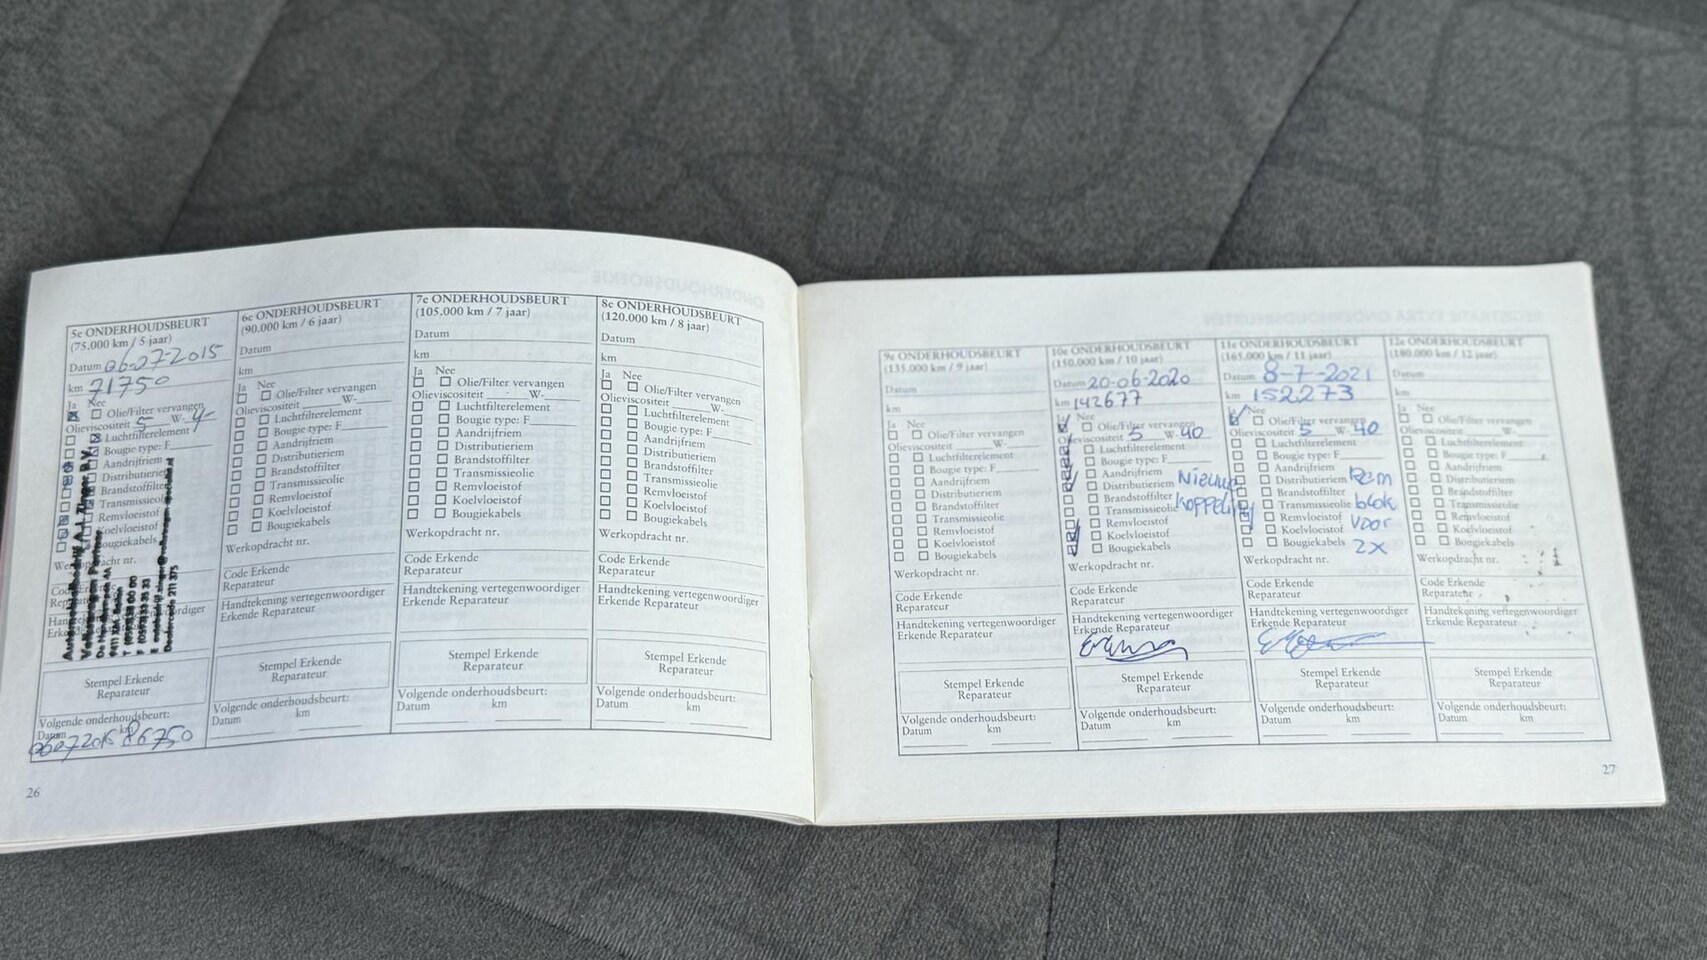 5e ONDERHOUDSBEURT
(75.000 km / 5 jaar)
Datum 06-07-2015
km 71750
Ja Nee
Olie/Filter vervangen
Olieviscositeit 5 W- 4
Luchtfilterelement
Bougie type: F
Aandrijfriem
Distributieriem
Brandstoffilter
Transmissieolie
Remvloeistof
Koelvloeistof
Bougiekabels
Werkopdracht nr.
Stempel Erkende
Reparateur
Volgende onderhoudsbeurt:
Datum km
86750
26
6e ONDERHOUDSBEURT
(90.000 km / 6 jaar)
Datum
km
Ja Nee
Olie/Filter vervangen
Olieviscositeit W-
Luchtfilterelement
Bougie type: F
Aandrijfriem
Distributieriem
Brandstoffilter
Transmissieolie
Remvloeistof
Koelvloeistof
Bougiekabels
Werkopdracht nr.
Code Erkende
Reparateur
Handtekening vertegenwoordiger
Erkende Reparateur
Stempel Erkende
Reparateur
Volgende onderhoudsbeurt:
Datum km
7e ONDERHOUDSBEURT
(105.000 km / 7 jaar)
Datum
km
Ja Nee
Olie/Filter vervangen
Olieviscositeit W-
Luchtfilterelement
Bougie type: F
Aandrijfriem
Distributieriem
Brandstoffilter
Transmissieolie
Remvloeistof
Koelvloeistof
Bougiekabels
Werkopdracht nr.
Code Erkende
Reparateur
Handtekening vertegenwoordiger
Erkende Reparateur
Stempel Erkende
Reparateur
Volgende onderhoudsbeurt:
Datum km
8e ONDERHOUDSBEURT
(120.000 km / 8 jaar)
Datum
km
Ja Nee
Olie/Filter vervangen
Olieviscositeit W-
Luchtfilterelement
Bougie type: F
Aandrijfriem
Distributieriem
Brandstoffilter
Transmissieolie
Remvloeistof
Koelvloeistof
Bougiekabels
Werkopdracht nr.
Code Erkende
Reparateur
Handtekening vertegenwoordiger
Erkende Reparateur
Stempel Erkende
Reparateur
Volgende onderhoudsbeurt:
Datum km
9e ONDERHOUDSBEURT
(135.000 km / 9 jaar)
Datum
km
Ja Nee
Olie/Filter vervangen
Olieviscositeit W-
Luchtfilterelement
Bougie type: F
Aandrijfriem
Distributieriem
Brandstoffilter
Transmissieolie
Remvloeistof
Koelvloeistof
Bougiekabels
Werkopdracht nr.
Code Erkende
Reparateur
Handtekening vertegenwoordiger
Erkende Reparateur
Stempel Erkende
Reparateur
Volgende onderhoudsbeurt:
Datum km
10e ONDERHOUDSBEURT
(150.000 km / 10 jaar)
Datum 20-06-2020
km 142677
Ja Nee
Olie/Filter vervangen
Olieviscositeit 5 W- 40
Luchtfilterelement
Bougie type: F
Aandrijfriem
Distributieriem Nieuwe
Brandstoffilter
Transmissieolie koppeling
Remvloeistof
Koelvloeistof
Bougiekabels
Werkopdracht nr.
Code Erkende
Reparateur
Handtekening vertegenwoordiger
Erkende Reparateur
Stempel Erkende
Reparateur
Volgende onderhoudsbeurt:
Datum km
11e ONDERHOUDSBEURT
(165.000 km / 11 jaar)
Datum 8-7-2021
km 152273
Ja Nee
Olie/Filter vervangen
Olieviscositeit 5 W- 40
Luchtfilterelement
Bougie type: F
Aandrijfriem
Distributieriem Rem
Brandstoffilter
Transmissieolie blok
Remvloeistof voor
Koelvloeistof
Bougiekabels 2x
Werkopdracht nr.
Code Erkende
Reparateur
Handtekening vertegenwoordiger
Erkende Reparateur
Stempel Erkende
Reparateur
Volgende onderhoudsbeurt:
Datum km
12e ONDERHOUDSBEURT
(180.000 km / 12 jaar)
Datum
km
Ja Nee
Olie/Filter vervangen
Olieviscositeit W-
Luchtfilterelement
Bougie type: F
Aandrijfriem
Distributieriem
Brandstoffilter
Transmissieolie
Remvloeistof
Koelvloeistof
Bougiekabels
Werkopdracht nr.
Code Erkende
Reparateur
Handtekening vertegenwoordiger
Erkende Reparateur
Stempel Erkende
Reparateur
Volgende onderhoudsbeurt:
Datum km
27